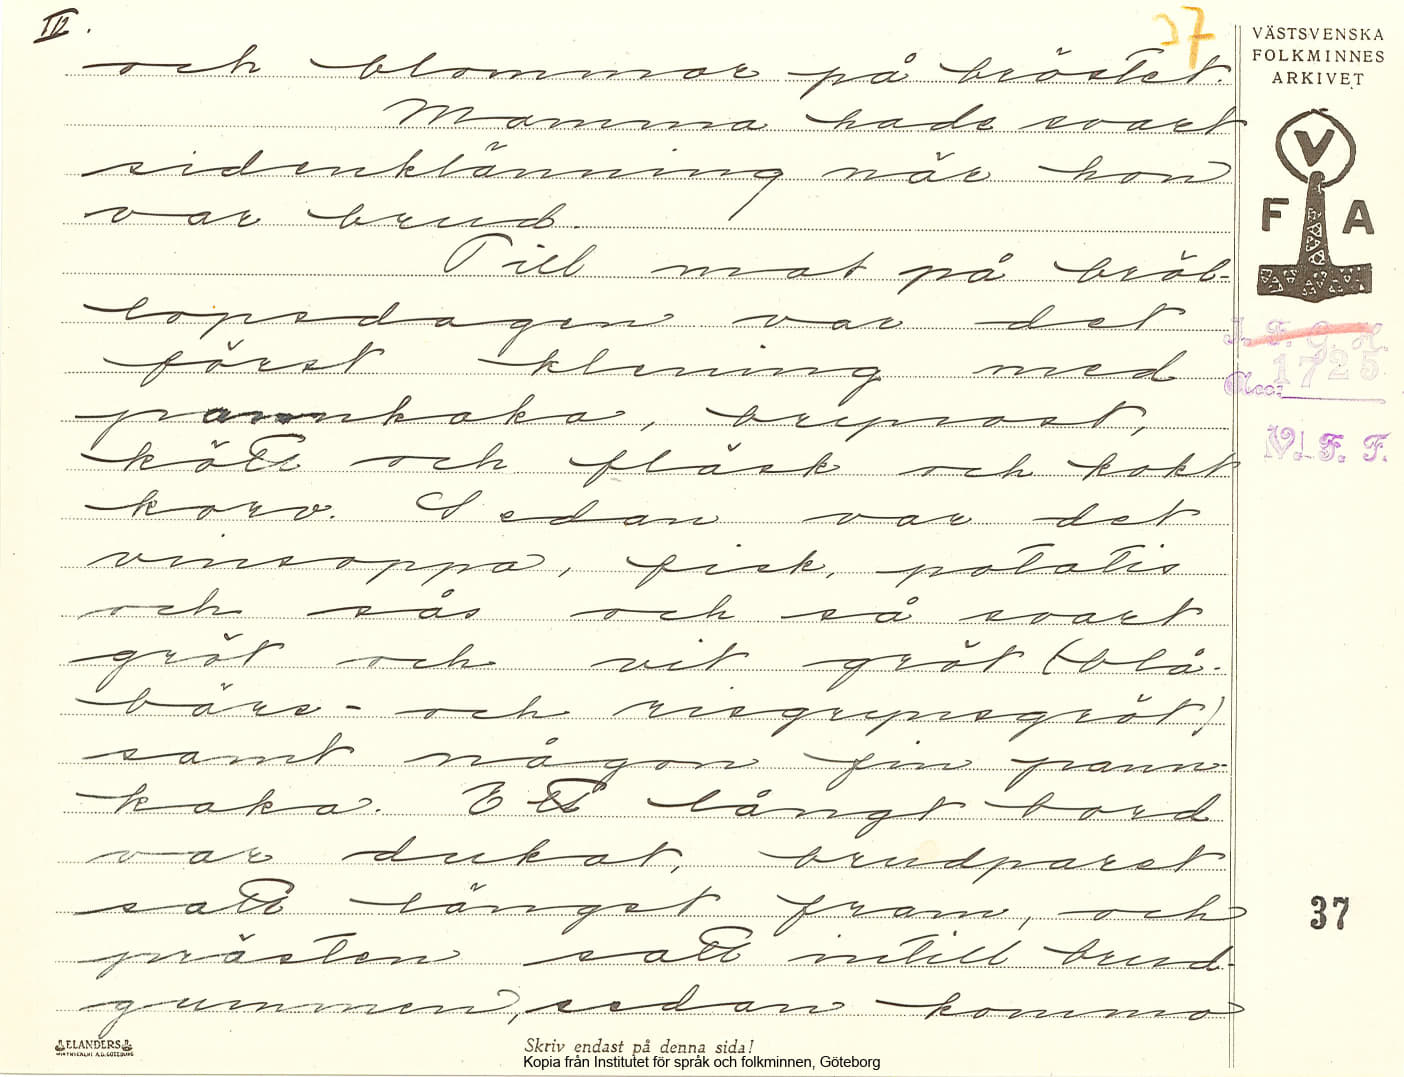 IV.
37
VÄSTSVENSKA
FOLKMINNES
ARKIVET
V
F A
och blommor på bröstet.
Mamma hade svart
sidenklänning när hon
var brud.
Till mat på bröl-
lopsdagen var det
först klening med
pannkaka, brynost,
kött och fläsk och kokt
korv. Sedan var det
vinsoppa, fisk, potatis
och sås och så svart
gröt och vit gröt (blå-
bärs- och risgrynsgröt)
samt någon fin pann-
kaka. Ett långt bord
var dukat, brudparet
satt längst fram, och
prästen satt intill brud-
gummen, sedan kommo
I. F. G. H.
Acc: 1725
V. F. F.
37
ELANDERS
Skriv endast på denna sida!
Kopia från Institutet för språk och folkminnen, Göteborg